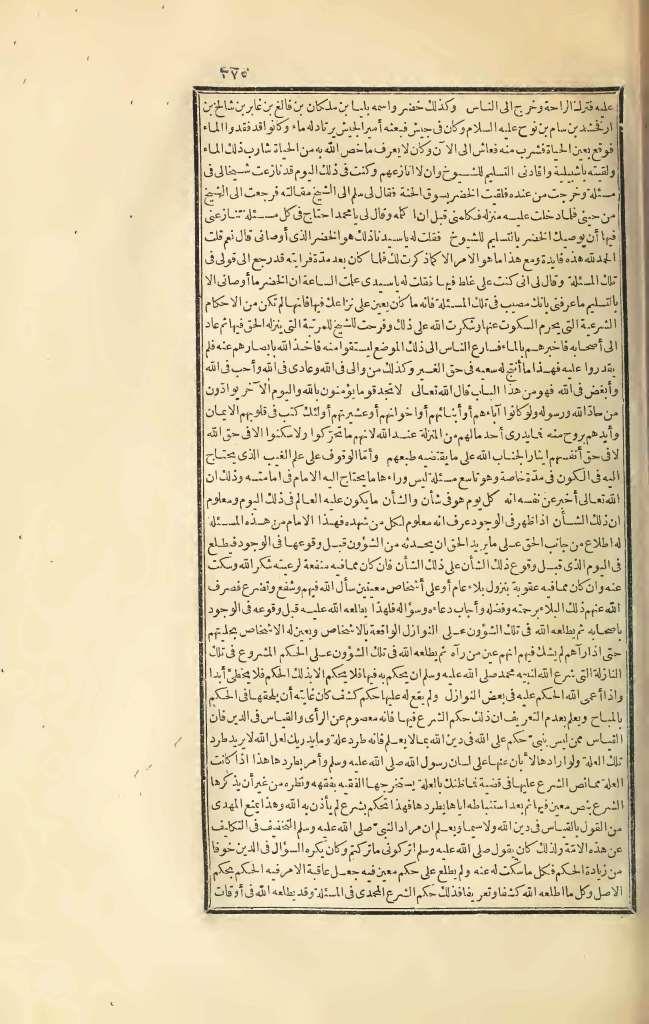 ٣٧٥
عليه فترك الراحة وخرج الى الناس وكذلك خضر واسمه بليا بن ملكان بن فالغ بن غابر بن شالخ بن
ارفخشد بن سام بن نوح عليه السلام وكان فى جيش فبعثه أمير الجيش يرتاد له ماء وكانوا قد فقدوا الماء
فوقع بعين الحياة فشرب منه فعاش الى الآن وكان لا يعرف ما خص الله به من الحياة شارب ذلك الماء
ولقيته باشبيلية وأفادنى التسليم للشيوخ وان لا أنازعهم وكنت فى ذلك اليوم قد نازعت شيخا لى فى
مسئلة وخرجت من عنده فلقيت الخضر بسوق الحنة فقال لى سلم الى الشيخ مقالته فرجعت الى الشيخ
من حينى فلما دخلت عليه منزله فكلمنى قبل ان أكلمه وقال لى يا محمد احتاج فى كل مسئلة تنازعنى
فيها أن يوصيك الخضر بالتسليم للشيوخ فقلت له يا سيدنا ذلك هو الخضر الذى أوصانى قال نعم قلت
الحمد لله هذه فائدة ومع هذا فما هو الامر الا كما ذكرت لك فلما كان بعد مدة فرأيته قد رجع الى قولى فى
تلك المسئلة وقال لى انى كنت على غلط فيها فقلت له يا سيدى علمت الساعة ان الخضر ما أوصانى الا
بالتسليم ما عرفنى بانك مصيب فى تلك المسئلة فانه ما كان يتعين على نزاعك فيها فانها لم تكن من الاحكام
الشرعية التى يحرم السكوت عنها وشكرت الله على ذلك وفرحت للشيخ للمرتبة التى ينزله الحق فيها ثم عاد
الى أصحابه فاخبرهم بالماء فسارع الناس الى ذلك الموضع ليستقوا منه فاخذ الله بابصارهم عنه فلم
يقدروا عليه فهذا ما أنتج له سعيه فى حق الغير وكذلك من والى فى الله وعادى فى الله وأحب فى الله
وأبغض فى الله فهو من هذا الباب قال الله تعالى لا تجد قوما يؤمنون بالله واليوم الآخر يوادّون
من حادّ الله ورسوله ولو كانوا آباءهم أو أبناءهم أو اخوانهم أو عشيرتهم أولئك كتب فى قلوبهم الايمان
وأيدهم بروح منه فما يدرى أحد ما لهم من المنزلة عند الله لانهم ما تحركوا ولا سكنوا الا فى حق الله
لا فى حق أنفسهم ايثارا لجناب الله على ما يقتضيه طبعهم وأما الوقوف على علم الغيب الذى يحتاج
اليه فى الكون فى مدة خاصة وهو تاسع مسئلة ليس وراءها ما يحتاج اليه الامام فى امامته وذلك ان
الله تعالى أخبر عن نفسه انه كل يوم هو فى شأن والشأن ما يكون عليه العالم فى ذلك اليوم ومعلوم
ان ذلك الشأن اذا ظهر فى الوجود عرف انه معلوم لكل من شهده فهذا الامام من هذه المسئلة
له اطلاع من جانب الحق على ما يريد الحق ان يحدثه من الشؤون قبل وقوعها فى الوجود فيطلع
فى اليوم الذى قبل وقوع ذلك الشأن على ذلك الشأن فان كان مما فيه منفعة لرعيته شكر الله وسكت
عنه وان كان مما فيه عقوبة بنزول بلاء عام أو على أشخاص معينين سأل الله فيهم وشفع وتضرع فصرف
الله عنهم ذلك البلاء برحمته وفضله وأجاب دعاءه وسؤاله فلهذا يطلعه الله عليه قبل وقوعه فى الوجود
باصحابه ثم يطلعه الله فى تلك الشؤون على النوازل الواقعة بالاشخاص ويعين له الاشخاص بحليتهم
حتى اذا رآهم لم يشك فيهم انهم عين من رآه ثم يطلعه الله فى تلك الشؤون على الحكم المشروع فى تلك
النازلة التى شرع الله لنبيه محمد صلى الله عليه وسلم ان يحكم به فيها فلا يحكم الا بذلك الحكم فلا يخطئ أبدا
واذا أعمى الله الحكم عليه فى بعض النوازل ولم يقع له عليها حكم كشف كان غايته أن يلحقها فى الحكم
بالمباح ويعلم بعدم التعريف ان ذلك حكم الشرع فيها فانه معصوم عن الرأى والقياس فى الدين فان
القياس ممن ليس بنبى حكم على الله فى دين الله بما لا يعلم فانه طرد علة وما يدريك لعل الله لا يريد طرد
تلك العلة ولو أرادها لأبان عنها على لسان رسول الله صلى الله عليه وسلم وأمر بطردها هذا اذا كانت
العلة مما نص الشرع عليها فى قضية فما ظنك بالعلة يستخرجها الفقيه بفقهه ونظره من غير أن يذكرها
الشرع بنص معين فيها ثم بعد استنباطه اياها يطردها فهذا تحكم بشرع لم يأذن به الله وهذا يمنع المهدى
من القول بالقياس فى دين الله ولا سيما ويعلم ان مراد النبى صلى الله عليه وسلم التخفيف فى التكليف
عن هذه الامة ولذلك كان يقول صلى الله عليه وسلم اتركونى ما تركتكم وكان يكره السؤال فى الدين خوفا
من زيادة الحكم فكل ما سكت له عنه ولم يطلع على حكم معين فيه جعل عاقبة الامر فيه الحكم بحكم
الاصل وكل ما اطلعه الله كشفا وتعريفا فذلك حكم الشرع المحمدى فى المسئلة وقد يطلعه الله فى أوقات